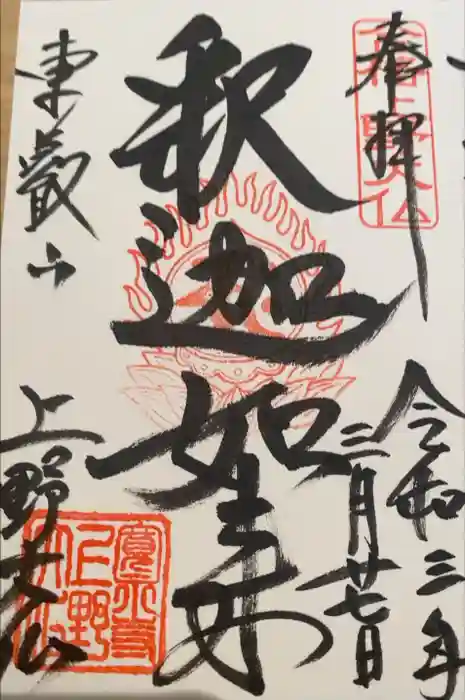 奉拝
令和三年
三月廿七日
釈迦如来
東叡山
上野大仏
寛永寺
上野
大仏